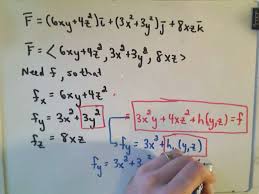 F̄ = (6xy+4z²)ī + (3x²+3y²)j̄ + 8xz k̄
F̄ = < 6xy+4z², 3x²+3y², 8xz >
Need f, so that
f_x = 6xy+4z²
f_y = 3x²+3y²
f_z = 8xz
= 3x²y + 4xz² + h(y,z) = f
f_y = 3x² + h_y(y,z)
f_y = 3x²+3